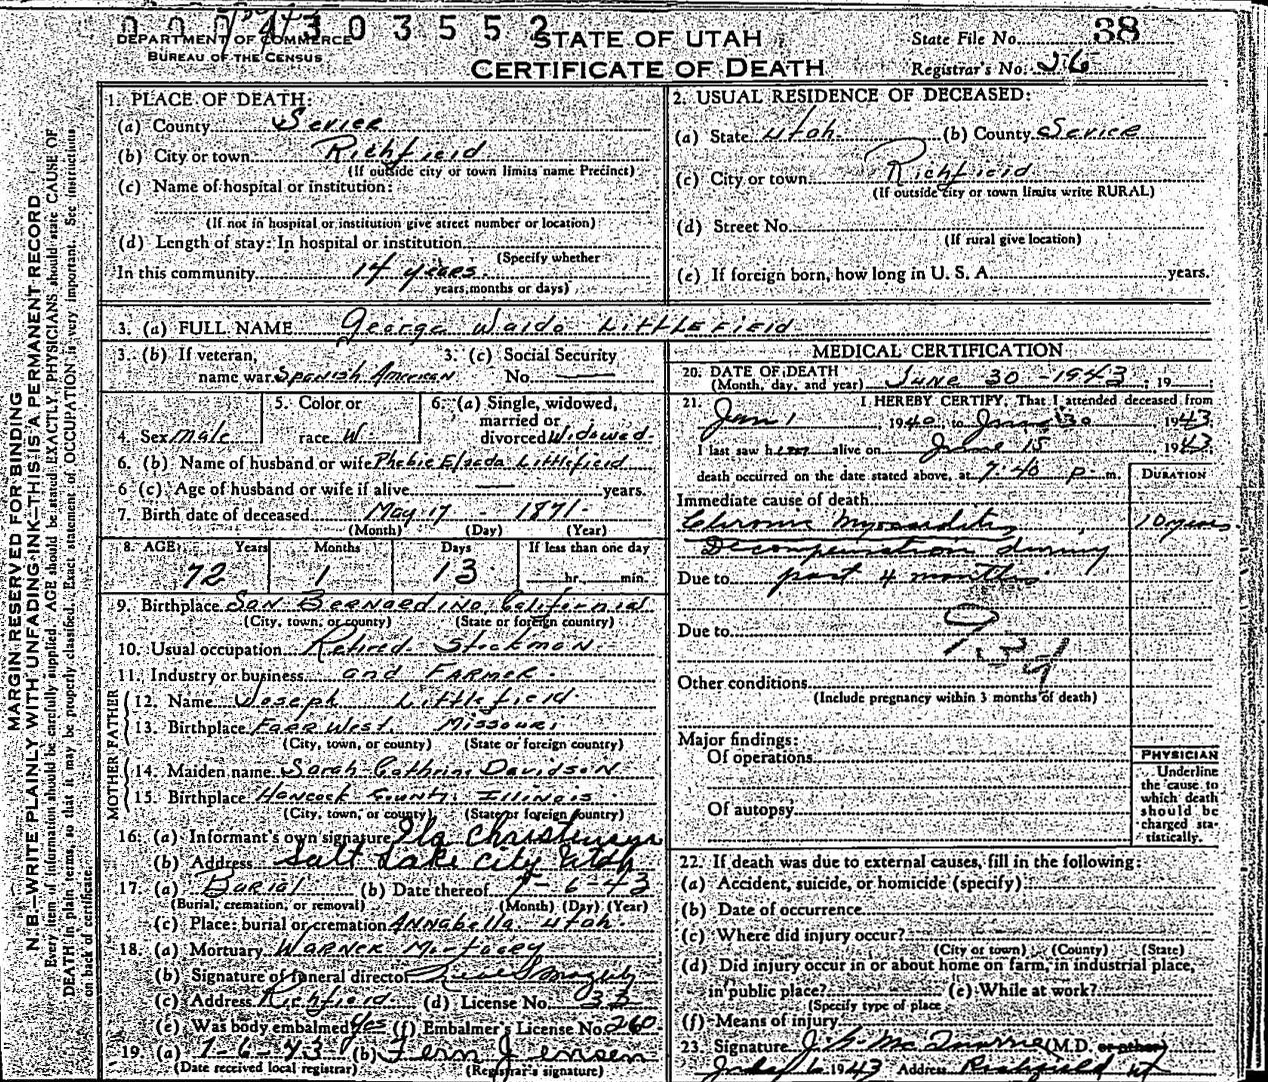 0 0 0 4 3 0 3 5 5 2
DEPARTMENT OF COMMERCE
BUREAU OF THE CENSUS
STATE OF UTAH
CERTIFICATE OF DEATH
State File No. 38
Registrar's No. 26
MARGIN RESERVED FOR BINDING
N. B.—WRITE PLAINLY WITH UNFADING INK—THIS IS A PERMANENT RECORD
Every item of information should be carefully supplied. AGE should be stated EXACTLY. PHYSICIANS should state CAUSE OF
DEATH in plain terms, so that it may be properly classified. Exact statement of OCCUPATION is very important. See instructions
on back of certificate.
1. PLACE OF DEATH:
(a) County Sevier
(b) City or town Richfield
(If outside city or town limits name Precinct)
(c) Name of hospital or institution:
(If not in hospital or institution give street number or location)
(d) Length of stay: In hospital or institution
(Specify whether
In this community 14 years
years, months or days)
2. USUAL RESIDENCE OF DECEASED:
(a) State Utah (b) County Sevier
(c) City or town Richfield
(If outside city or town limits write RURAL)
(d) Street No.
(If rural give location)
(e) If foreign born, how long in U. S. A. years.
3. (a) FULL NAME George Waldo Littlefield
3. (b) If veteran, 3. (c) Social Security
name war Spanish American No.
4. Sex male
5. Color or
race W
6. (a) Single, widowed,
married or
divorced Widowed
6. (b) Name of husband or wife Phebie Elseda Littlefield
6 (c). Age of husband or wife if alive years.
7. Birth date of deceased May 17 - 1871
(Month) (Day) (Year)
8. AGE: Years Months Days If less than one day
72 1 13 hr. min.
9. Birthplace San Bernardino, California
(City, town, or county) (State or foreign country)
10. Usual occupation Retired Stockman
11. Industry or business and Farmer.
FATHER
12. Name Joseph Littlefield
13. Birthplace Farr West, Missouri
(City, town, or county) (State or foreign country)
MOTHER
14. Maiden name Sarah Cathrine Davidson
15. Birthplace Hancock County, Illinois
(City, town, or county) (State or foreign country)
16. (a) Informant's own signature Ila Christensen
(b) Address Salt Lake City Utah
17. (a) Burial (b) Date thereof 7-6-43
(Burial, cremation, or removal) (Month) (Day) (Year)
(c) Place: burial or cremation Annabella, Utah
18. (a) Mortuary Warner Mortuary
(b) Signature of funeral director
(c) Address Richfield (d) License No. 33
(e) Was body embalmed Yes (f) Embalmer's License No. 260
19. (a) 7-6-43 (b) Fern Jensen
(Date received local registrar) (Registrar's signature)
MEDICAL CERTIFICATION
20. DATE OF DEATH
(Month, day, and year) June 30 - 1943, 19
21. I HEREBY CERTIFY, That I attended deceased from
Jan 1 1940, to June 30 1943
I last saw him alive on June 15 1943
death occurred on the date stated above, at 7:40 p. m.
DURATION
Immediate cause of death
Chronic Myocarditis 10 years
Decompensation during
Due to past 4 months
Due to
93d
Other conditions
(Include pregnancy within 3 months of death)
Major findings:
Of operations
Of autopsy
PHYSICIAN
Underline
the cause to
which death
should be
charged sta-
tistically.
22. If death was due to external causes, fill in the following:
(a) Accident, suicide, or homicide (specify)
(b) Date of occurrence
(c) Where did injury occur?
(City or town) (County) (State)
(d) Did injury occur in or about home on farm, in industrial place,
in public place? (e) While at work?
(Specify type of place
(f) Means of injury
23. Signature J. G. McQuarrie (M.D. or other)
July 6 1943 Address Richfield Ut